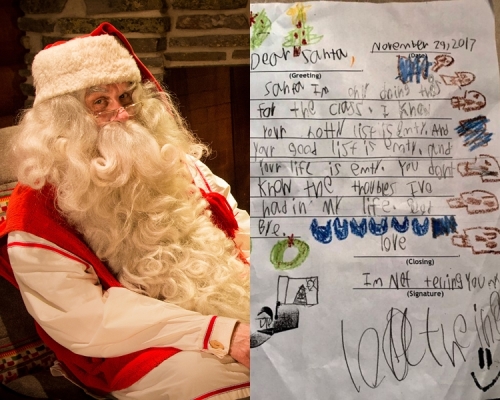 November 29, 2017
Dear Santa,
(Greeting)
Santa I'm only doing this
for the class. I know
your notty list is emty. And
your good list is emty. and
your life is emty. You dont
know the troubles Ive
had in my life.
Bye.
love
(Closing)
Im Not telling you my
(Signature)